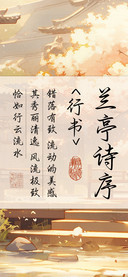 兰亭诗序
<行书>
错落有致 流动的美感
其秀丽清逸 风流极致
恰如行云流水